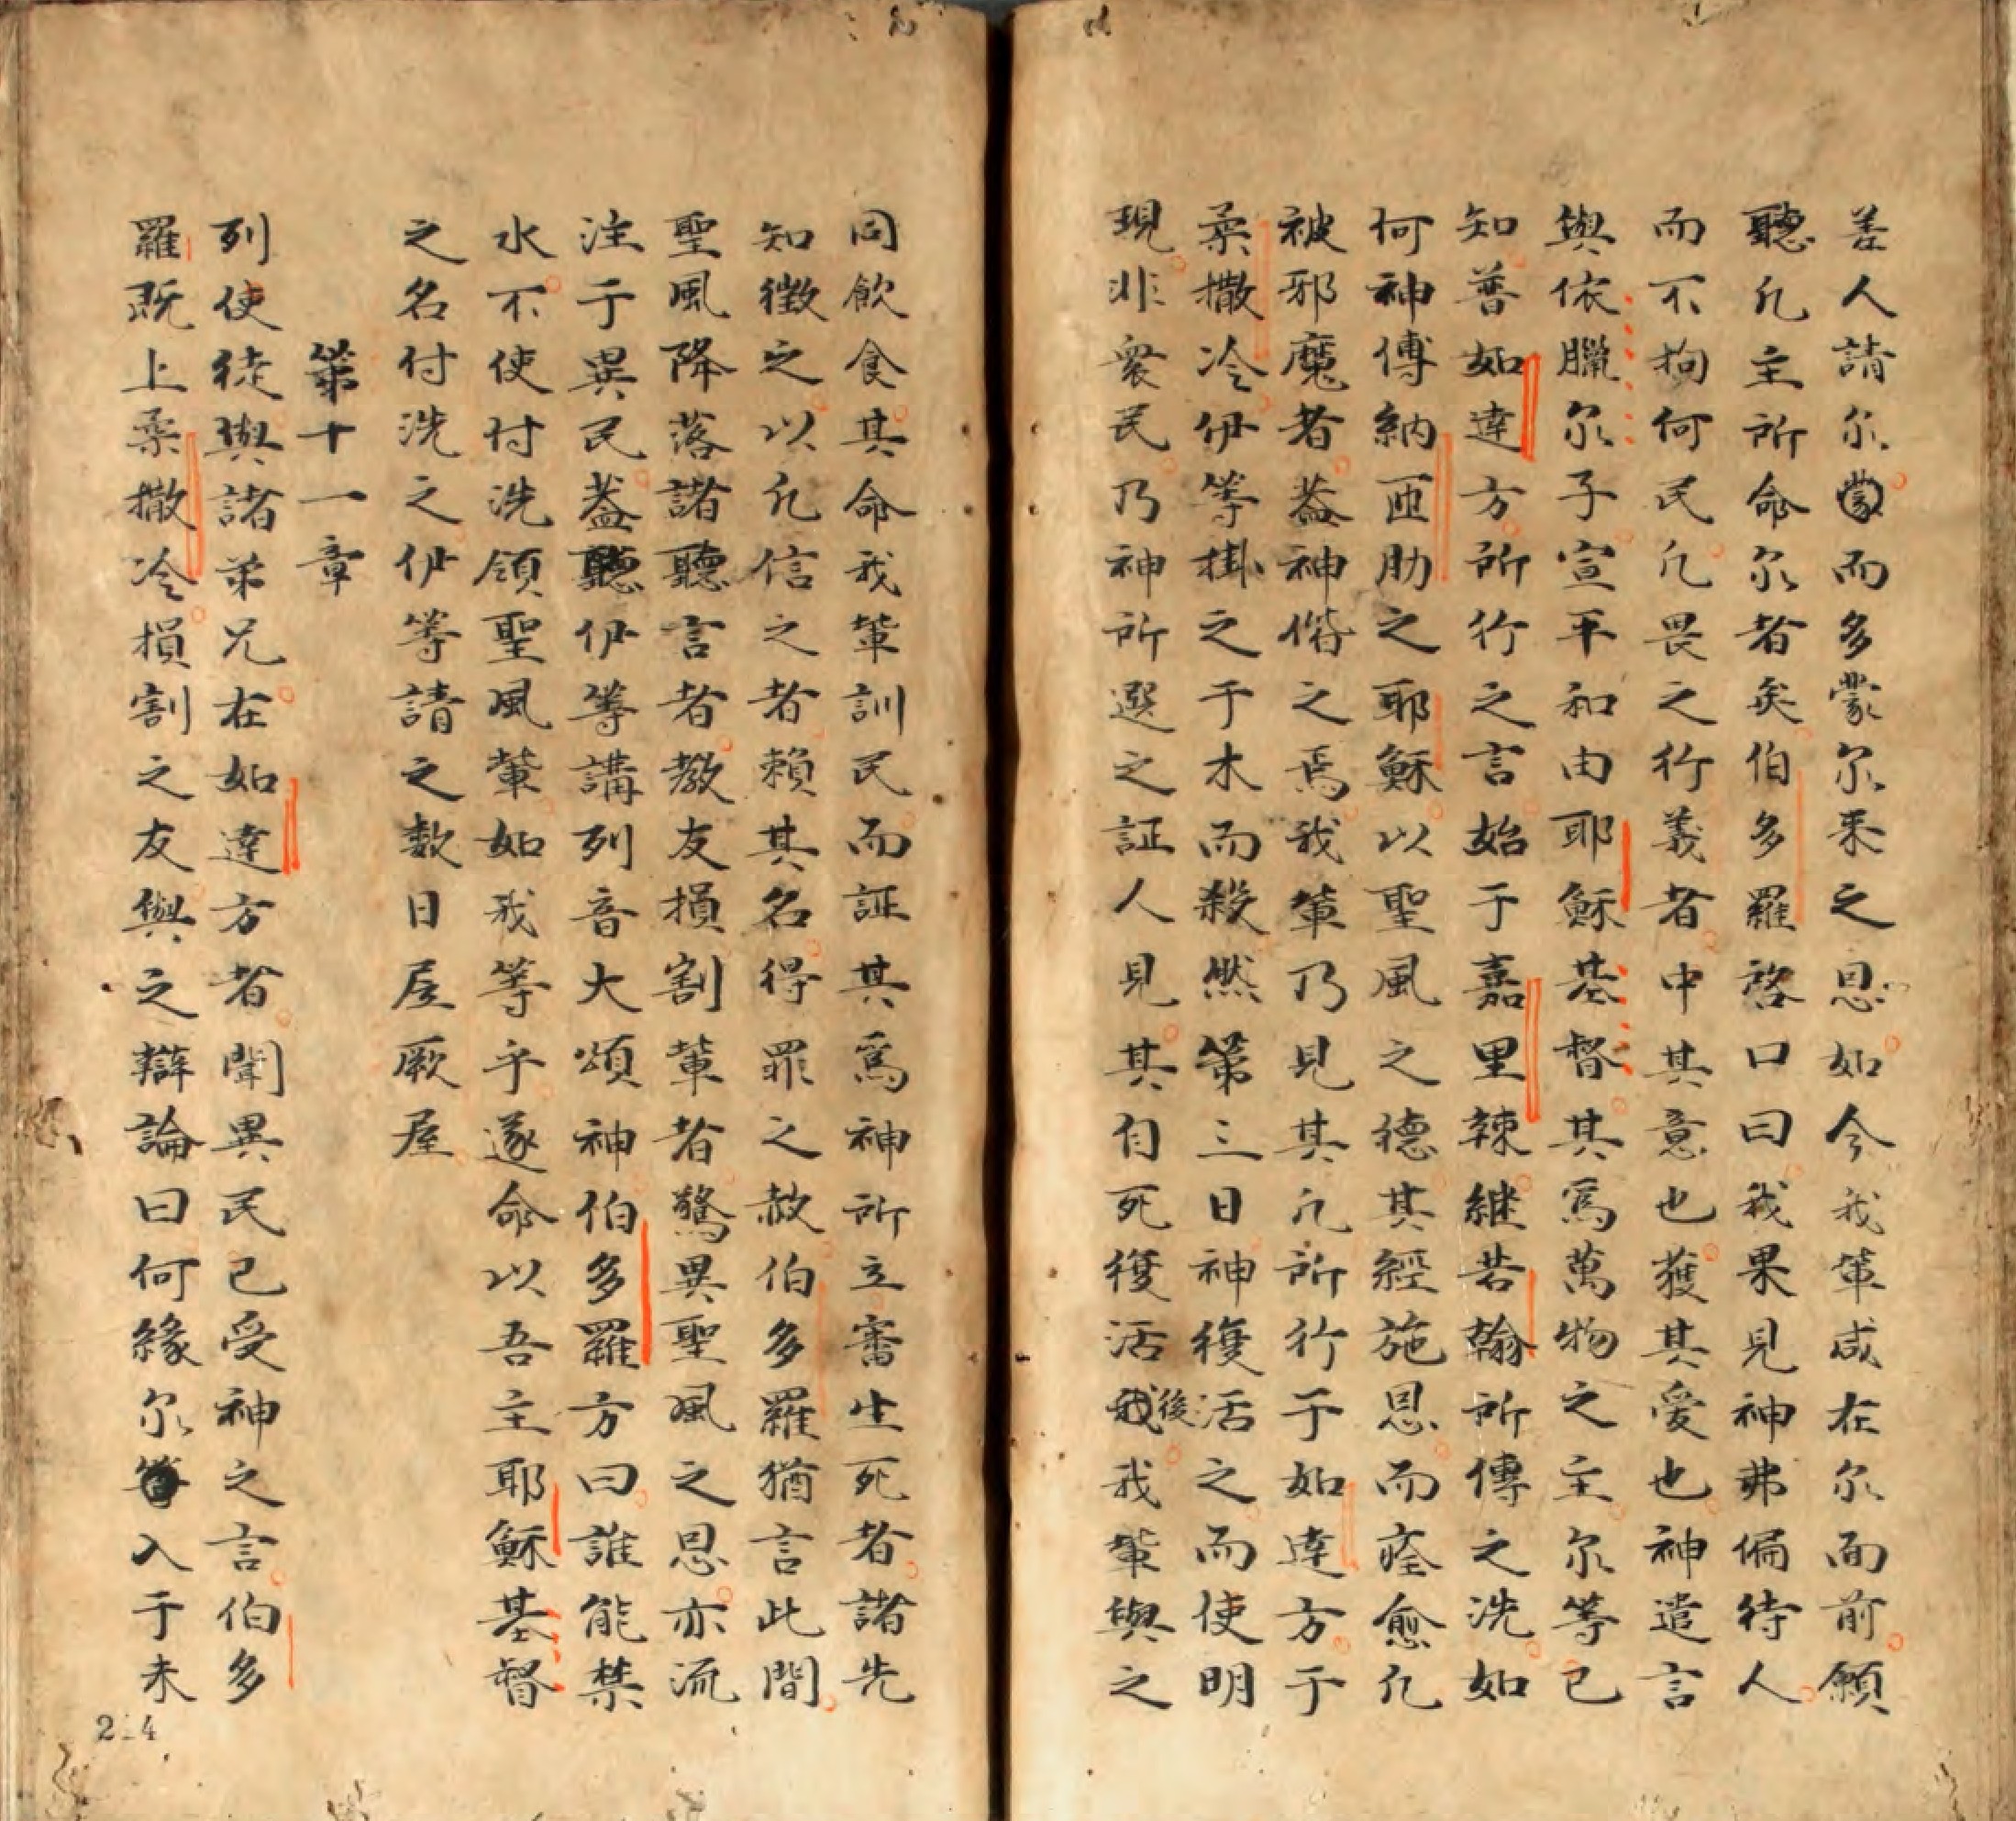 善人請尔蒙而多蒙尔来之恩如今我輩咸在尔面前願
聽凡主所命尔者矣伯多羅啓口曰我果見神弗偏待人
而不拘何民凡畏之行義者中其意也獲其愛也神遣言
與依臘尔子宣平和由耶穌基督其爲萬物之主尔等已
知普如達方所行之言始于嘉里辣継若翰所傳之洗如
何神傅納匝肋之耶穌以聖風之德其經施恩而痊愈凡
被邪魔者蓋神偕之焉我輩乃見其凡所行于如達方于
柔撒冷伊等掛之于木而殺然第三日神復活之而使明
現非衆民乃神所選之証人見其自死復活後我輩與之
同飲食其命我輩訓民而証其爲神所立審生死者諸先
知徵之以凡信之者賴其名得罪之赦伯多羅猶言此間
聖風降落諸聽言者教友損割輩者驚異聖風之恩亦流
注于異民蓋聽伊等講列音大頌神伯多羅方曰誰能禁
水不使付洗領聖風輩如我等乎遂命以吾主耶穌基督
之名付洗之伊等請之数日居厥屋
第十一章
列使徒與諸弟兄在如達方者聞異民已受神之言伯多
羅既上柔撒冷損割之友與之辯論曰何緣尔入于未
214